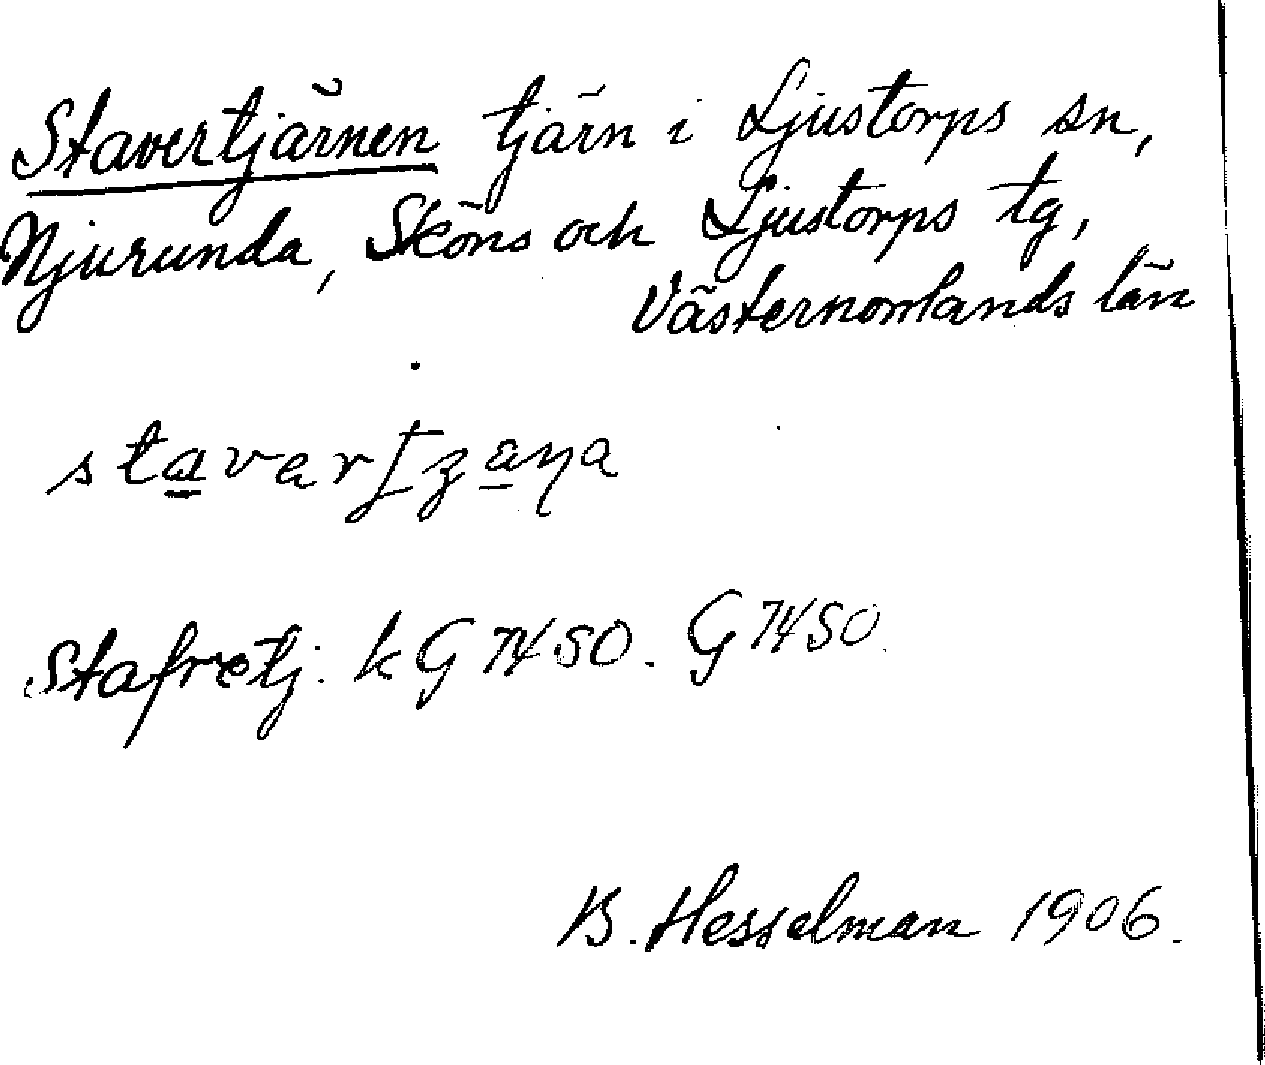 Stavertjärnen tjärn i Ljustorps sn,
Njurunda, Sköns och Ljustorps tg,
Västernorrlands län
Stafretj. k G 74 SO. G 74 SO.
B. Hesselman 1906.